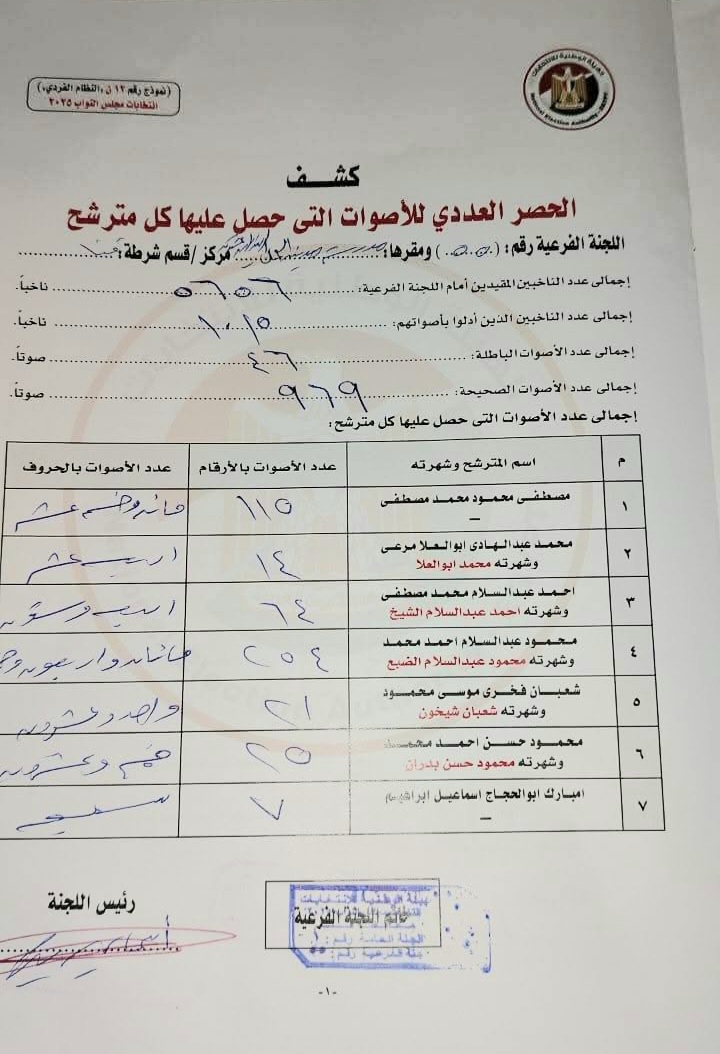 الهيئة الوطنية للانتخابات
National Election Authority - EGYPT
(نموذج رقم ١٢ ن ،النظام الفردي،)
انتخابات مجلس النواب ٢٠٢٥
كشــف
الحصر العددي للأصوات التى حصل عليها كل مترشح
اللجنة الفرعية رقم: ( ) ومقرها: مدرسة مركز /قسم شرطة: قنا
إجمالى عدد الناخبين المقيدين أمام اللجنة الفرعية: ٥٦٥٦ ناخباً.
إجمالى عدد الناخبين الذين أدلوا بأصواتهم: ١٠١٥ ناخباً.
إجمالى عدد الأصوات الباطلة: ٤٦ صوتاً.
إجمالى عدد الأصوات الصحيحة: ٩٦٩ صوتاً.
إجمالى عدد الأصوات التى حصل عليها كل مترشح:
م اسم المترشح وشهرته عدد الأصوات بالأرقام عدد الأصوات بالحروف
١ مصطفى محمود محمد مصطفى ١١٥ مائة وخمسة عشر
–
٢ محمد عبدالهادى ابوالعلا مرعى ١٤ اربعة عشر
وشهرته محمد ابوالعلا
٣ احمد عبدالسلام محمد مصطفى ٦٤ اربعة وستون
وشهرته احمد عبدالسلام الشيخ
٤ محمود عبدالسلام احمد محمد ٢٥٤ مائتان واربعون
وشهرته محمود عبدالسلام الضبع
٥ شعبان فخرى موسى محمود ٢١ واحد وعشرون
وشهرته شعبان شيخون
٦ محمود حسن احمد محمد ٢٥ خمسة وعشرون
وشهرته محمود حسن بدران
٧ امبارك ابوالحجاج اسماعيل ابراهيم ٧ سبعة
–
رئيس اللجنة
خاتم اللجنة الفرعية
هيئة الوطنية للانتخابات
-١-